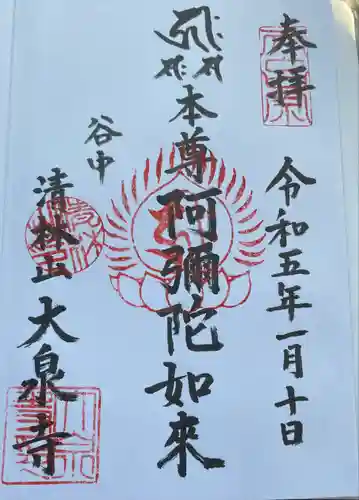 奉拝
令和五年一月十日
本尊阿彌陀如来
谷中
清林山大泉寺